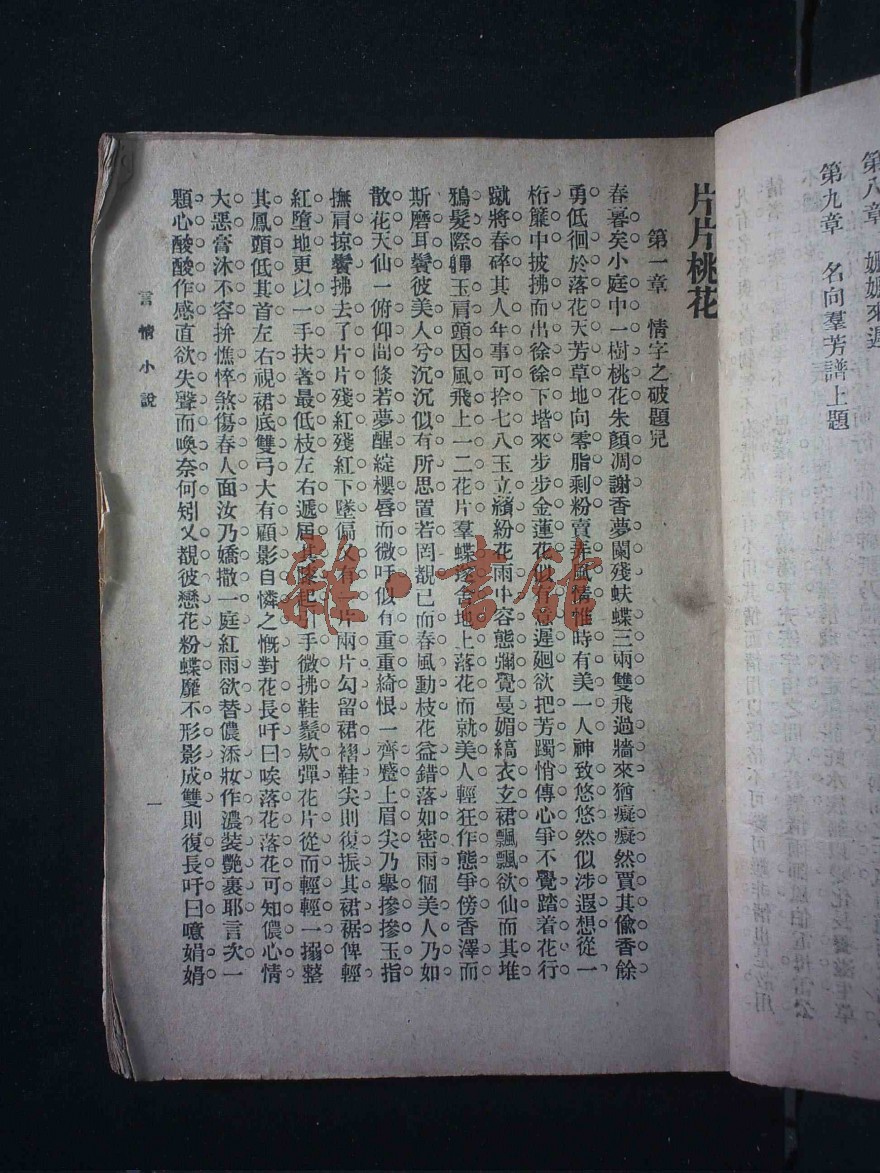 第八章
第九章　名向羣芳譜上題
片片桃花
第一章　情字之破題兒
春暮矣小庭中一樹桃花朱顏凋謝香夢闌殘蚨蝶三兩雙飛過牆來猶癡癡然賈其偸香餘
勇低徊於落花天芳草地向零脂剩粉賣弄風情惟時有美一人神致悠悠然似涉遐想從一
桁簾中披拂而出徐徐下堦來步步金蓮花似有遲廻欲把芳躅悄傳心爭不覺踏着花行
蹴將春碎其人年事可拾七八玉立繽紛花雨中容態彌覺曼媚縞衣玄裙飄飄欲仙而其堆
鴉髮際嚲玉肩頭因風飛上一二花片羣蝶遂舍地上落花而就美人輕狂作態爭傍香澤而
斯磨耳鬢彼美人兮沉沉似有所思置若罔覩已而春風動枝花益錯落如密雨個美人乃如
散花天仙一俯仰間倐若夢醒綻櫻唇而微吁似有重重綺恨一齊蹙上眉尖乃舉摻摻玉指
撫肩掠鬢拂去了片片殘紅殘紅下墜偏又有一片兩片勾留裙褶鞋尖則復振其裙裾俾輕
紅墮地更以一手扶著最低枝左右遞屈其膝起一手微拂鞋鬚欵彈花片從而輕輕一搦整
其鳳頭低其首左右視裙底雙弓大有顧影自憐之慨對花長吁曰唉落花落花可知儂心情
大惡膏沐不容拚憔悴煞傷春人面汝乃嬌撒一庭紅雨欲替儂添妝作濃裝艷裹耶言次一
顆心酸酸作感直欲失聲而喚奈何矧乂覩彼戀花粉蝶靡不形影成雙則復長吁曰噫娟娟
言情小說
一
雜·書館